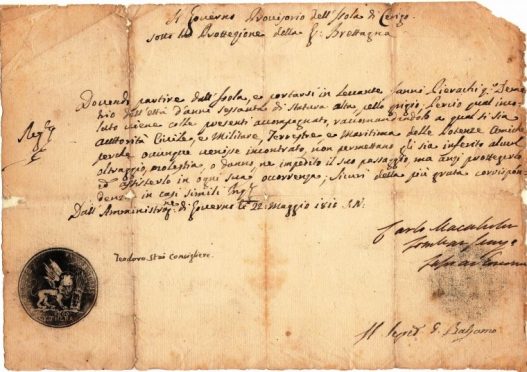 Il Governo Provisorio dell'Isola di Cerigo
sotto la Prottegione della G: Brettagna
Dovendo partire dall'Isola, e portarsi in Levante Janni Gierachi
dell'età d'anni sessanta di statura alta, pello grigio, perciò qual
viene colle presenti accompagnato, raccomandandolo a qual si sia
auttorità Civile, e Militare, Terrestre, e Maritima delle Potenze Amiche
perché ovunque venisse incontrato, non permettano gli sia inferito alcun
oltraggio, molestia, o danno, ne impedito il suo passaggio, ma anzi protteggerlo
ed assisterlo in ogni sua occorrenza; Sicuri della più grata corrispon
denza in casi simili
Reg.
Dall'Amministraz. di Governo li 22: Maggio 1810 S.N.
Teodoro Stai Consigliere.
Carlo
Balsamo